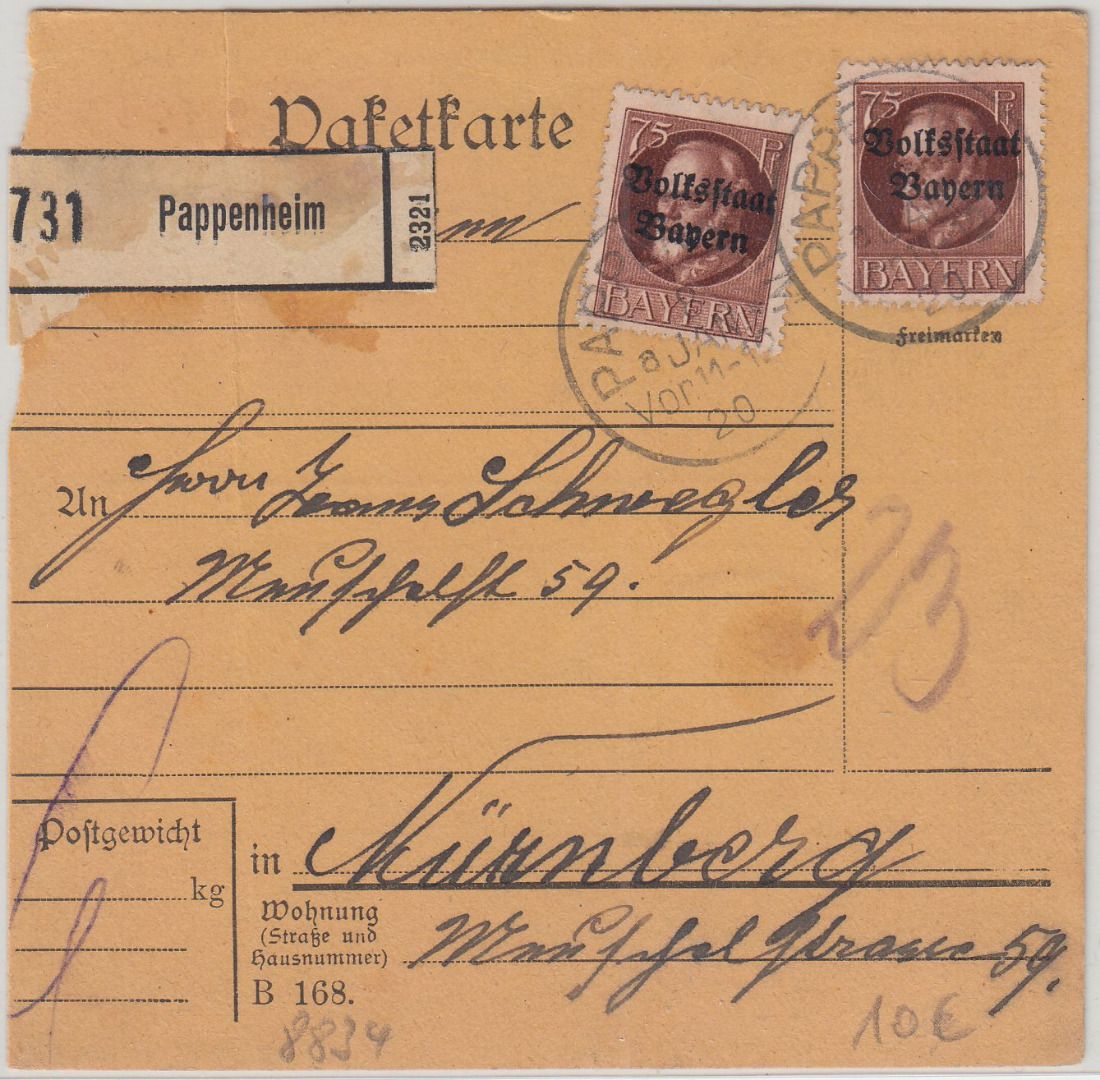 Paketkarte
731 Pappenheim 2321
75 Pf
Volksstaat
Bayern
BAYERN
75 Pf
Volksstaat
Bayern
BAYERN
PAPP
8 JAN
Vor 11-12
20
PAPP
20
Freimarken
An Herrn Hans Schwegler
Meuschelst 59.
23
Postgewicht
kg
in Nürnberg
Wohnung
(Straße und
Hausnummer)
Meuschelstrasse 59.
B 168.
8834
10€